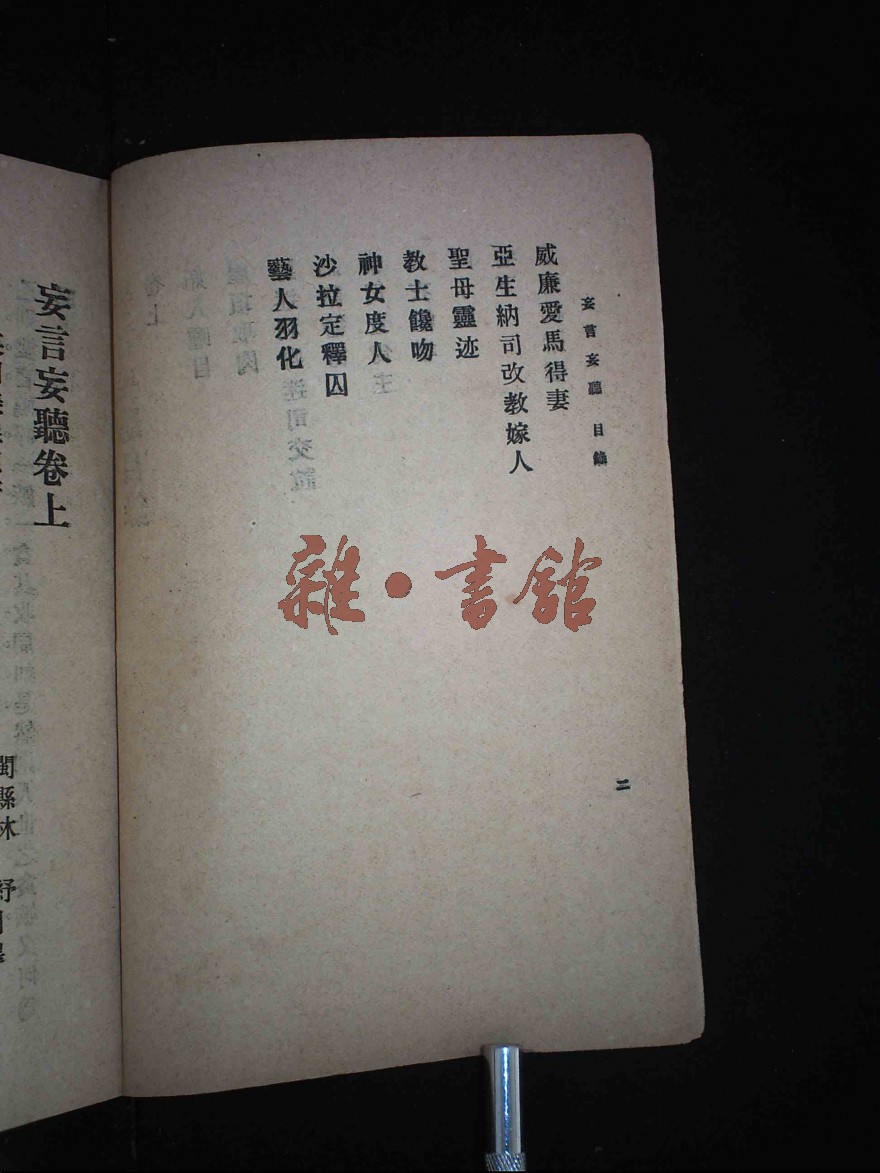 妄言妄聽 目錄
威廉愛馬得妻
亞生納司改教嫁人
聖母靈迹
教士饞吻
神女度人
沙拉定釋囚
藝人羽化
二
雜·書館
妄言妄聽卷上
閩縣林 紓